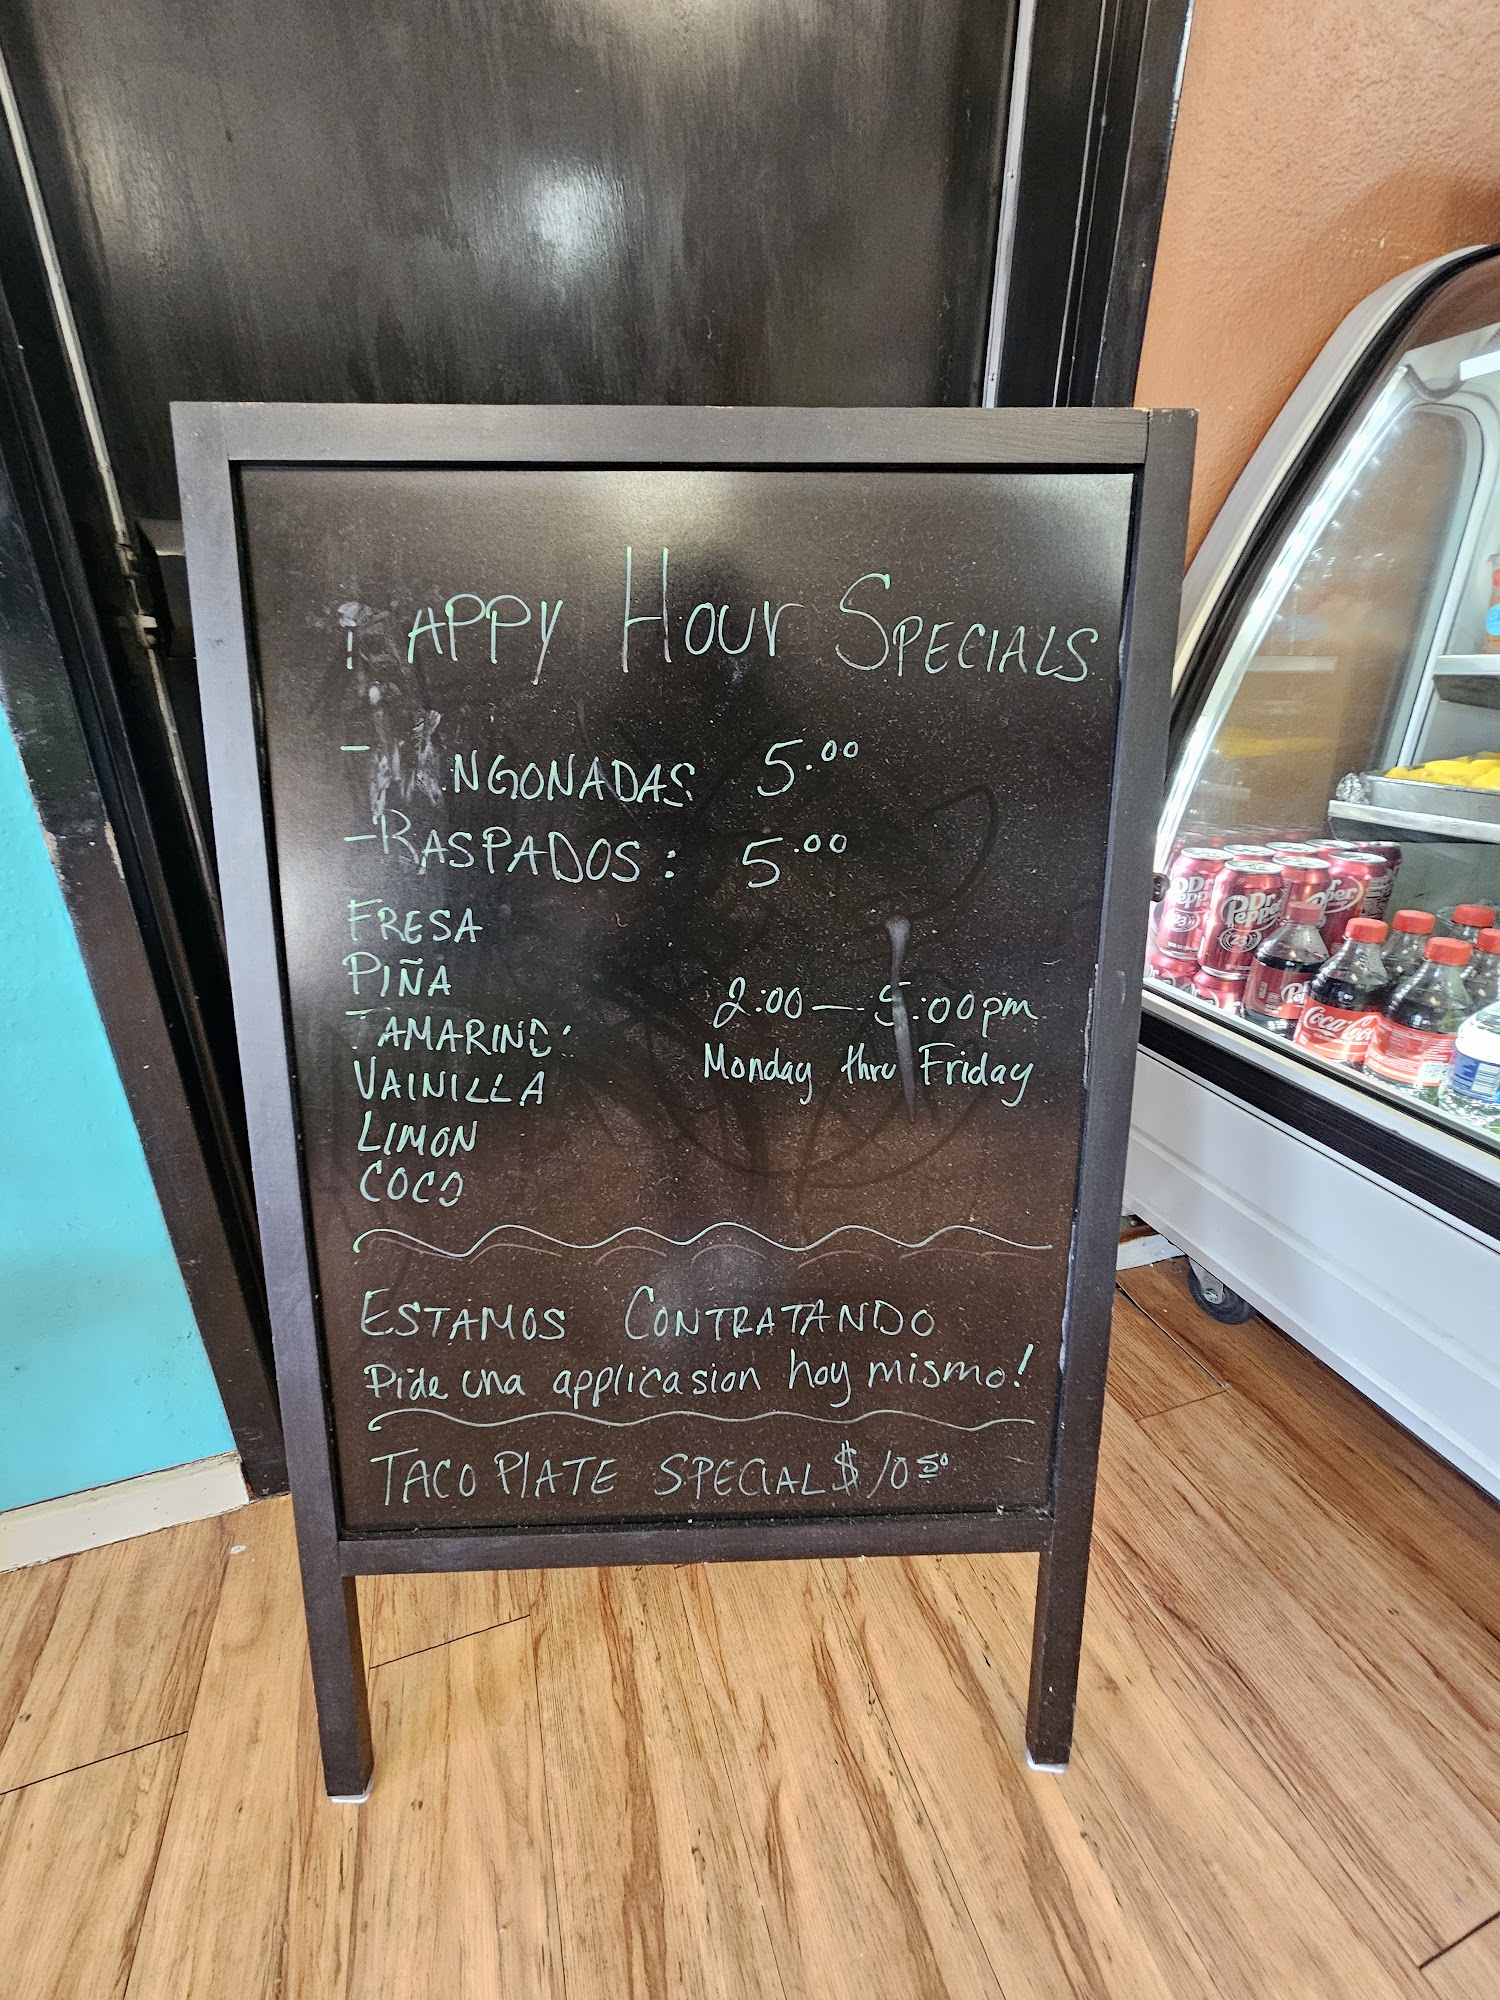 APPY HOUR SPECIALS
- NGONADAS 5.00
- RASPADOS: 5.00
FRESA
PIÑA
TAMARINDO
VAINILLA
LIMON
COCO
2:00 — 5:00pm
Monday thru Friday
ESTAMOS CONTRATANDO
Pide una applicasion hoy mismo!
TACO PlATE SPECIAL $10.50
Dr Pepper
23
Dr Pepper
Coca-Cola